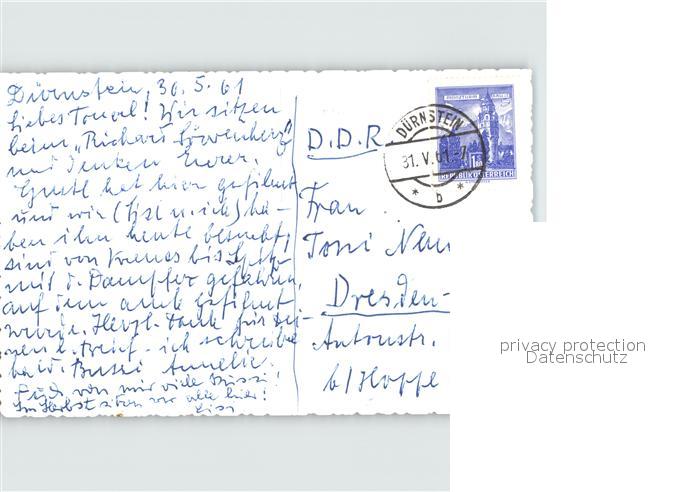 Dürnstein, 30.5.61
Wir sitzen
beim "Richard Löwenherz"
und denken Eurer.
Gustl hat hier gefilmt
und wir (Lisl u. ich) ha-
ben ihn heute besucht,
sind von Krems bis Spitz
mit d. Dampfer gefahren,
auf dem auch gefilmt
wurde. Herzl. Dank für Dei-
nen l. Brief - ich schreibe
bald. Bussi Annelie.
Euch von mir viele Bussi!
Im Herbst sitzen wir alle hier!
D.D.R
Frau
Toni
Dresden-
Antonstr.
b/Hoppe
DÜRNSTEIN
31. V. 61-7
* b *
REPUBLIK ÖSTERREICH
privacy protection
Datenschutz